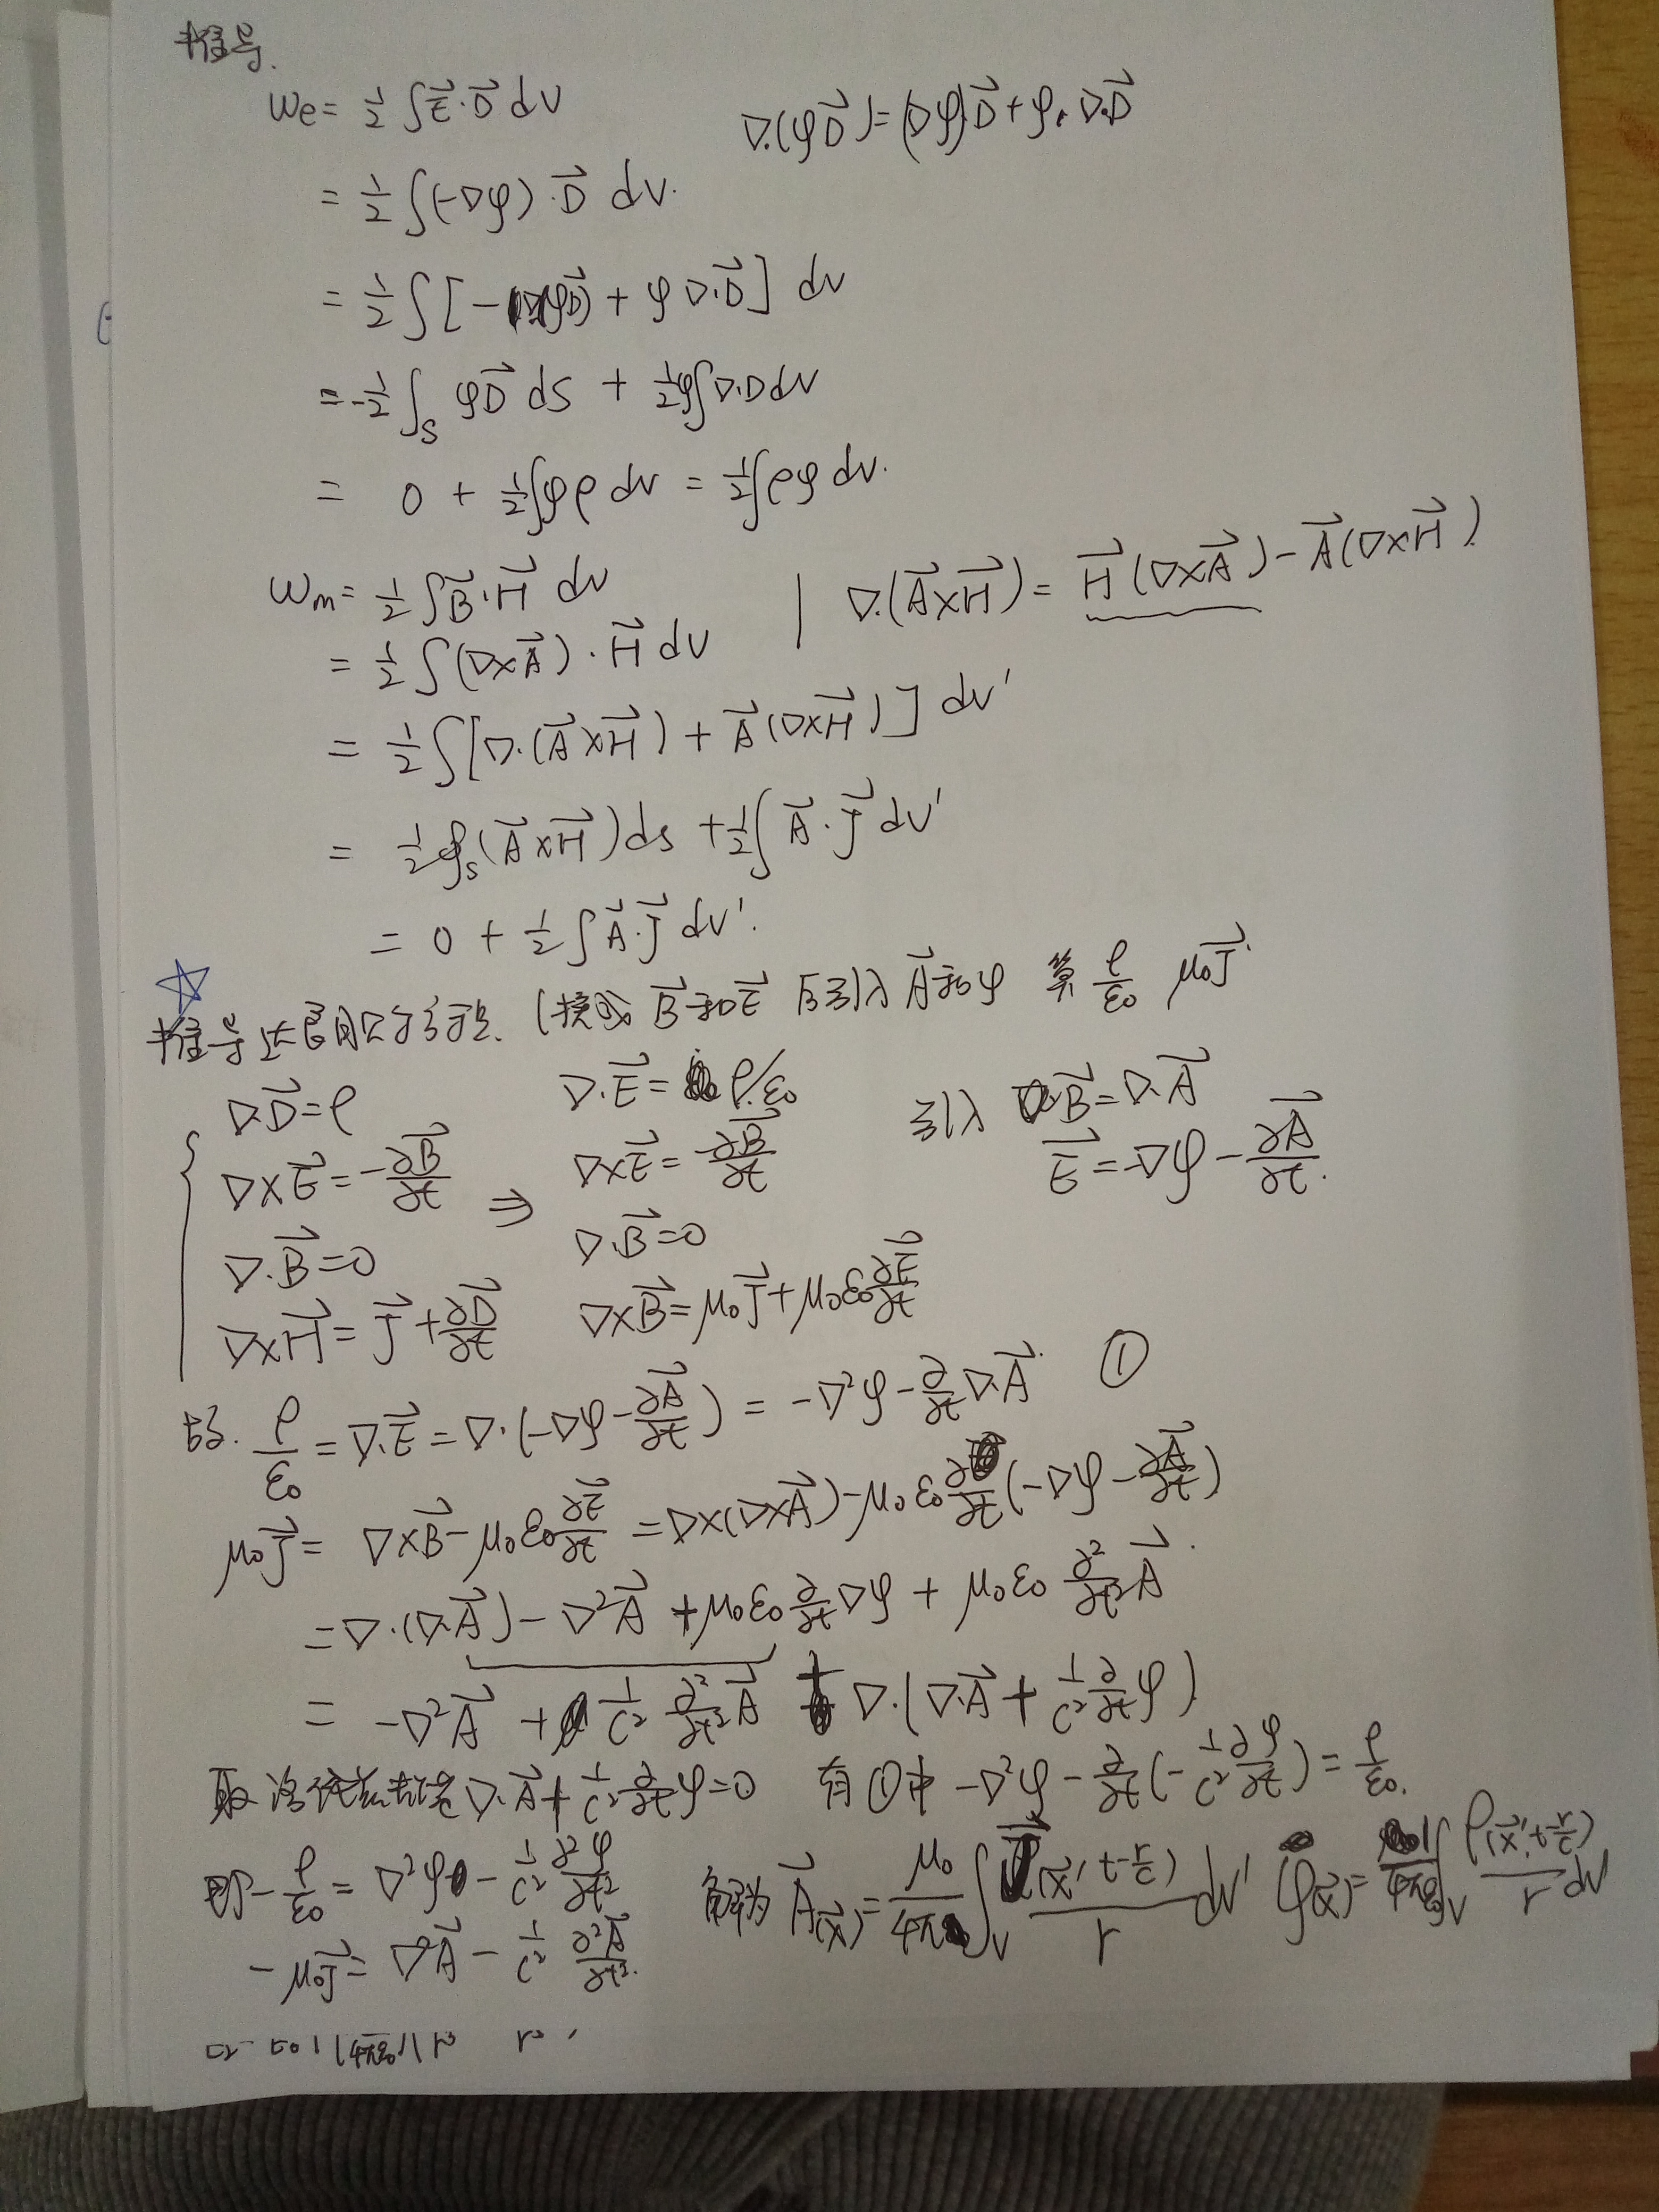 推导.
We = ½∫E⃗·D⃗ dV    ∇·(φD⃗) = (∇φ)D⃗ + φ·∇·D⃗
= ½∫(-∇φ)·D⃗ dV.
= ½∫[-∇(φD⃗) + φ∇·D⃗] dV
= -½∫_S φD⃗ ds + ½φ∫∇·D dV
= 0 + ½∫φρ dV = ½∫ρφ dV.
Wm = ½∫B⃗·H⃗ dV | ∇·(A⃗×H⃗) = H⃗(∇×A⃗) - A⃗(∇×H⃗).
= ½∫(∇×A⃗)·H⃗ dV
= ½∫[∇·(A⃗×H⃗) + A⃗(∇×H⃗)] dV'
= ½∮_S(A⃗×H⃗)ds + ½∫A⃗·J⃗ dV'
= 0 + ½∫A⃗·J⃗ dV'.
☆
推导达朗贝尔方程. (换成 B⃗和E⃗ 后引入 A⃗和φ 算 ρ/ε₀ μ₀J⃗
∇·D⃗=ρ    ∇·E⃗=ρ/ε₀    引入 B⃗=∇·A⃗
∇×E⃗=-∂B⃗/∂t ⇒ ∇×E⃗=-∂B⃗/∂t    E⃗=-∇φ-∂A⃗/∂t.
∇·B⃗=0    ∇·B⃗=0
∇×H⃗=J⃗+∂D⃗/∂t    ∇×B⃗=μ₀J⃗+μ₀ε₀∂E⃗/∂t
ρ/ε₀=∇·E⃗=∇·(-∇φ-∂A⃗/∂t)=-∇²φ-∂/∂t∇·A⃗. ①
μ₀J⃗=∇×B⃗-μ₀ε₀∂E⃗/∂t=∇×(∇×A⃗)-μ₀ε₀∂/∂t(-∇φ-∂A⃗/∂t)
=∇·(∇·A⃗)-∇²A⃗+μ₀ε₀∂/∂t∇φ+μ₀ε₀∂²/∂t²A⃗.
=-∇²A⃗+1/c² ∂²/∂t²A⃗+∇·(∇·A⃗+1/c² ∂/∂tφ)
取洛伦兹规范∇·A⃗+1/c² ∂/∂tφ=0 有①中 -∇²φ-∂/∂t(-1/c² ∂φ/∂t)=ρ/ε₀.
即-ρ/ε₀=∇²φ-1/c² ∂²φ/∂t²    解为 A⃗(x⃗)=μ₀/4π∫_V J⃗(x⃗', t-r/c)/r dV' φ(x⃗)=1/4πε₀∫_V ρ(x⃗', t-r/c)/r dV'
-μ₀J⃗=∇²A⃗-1/c² ∂²A⃗/∂t².